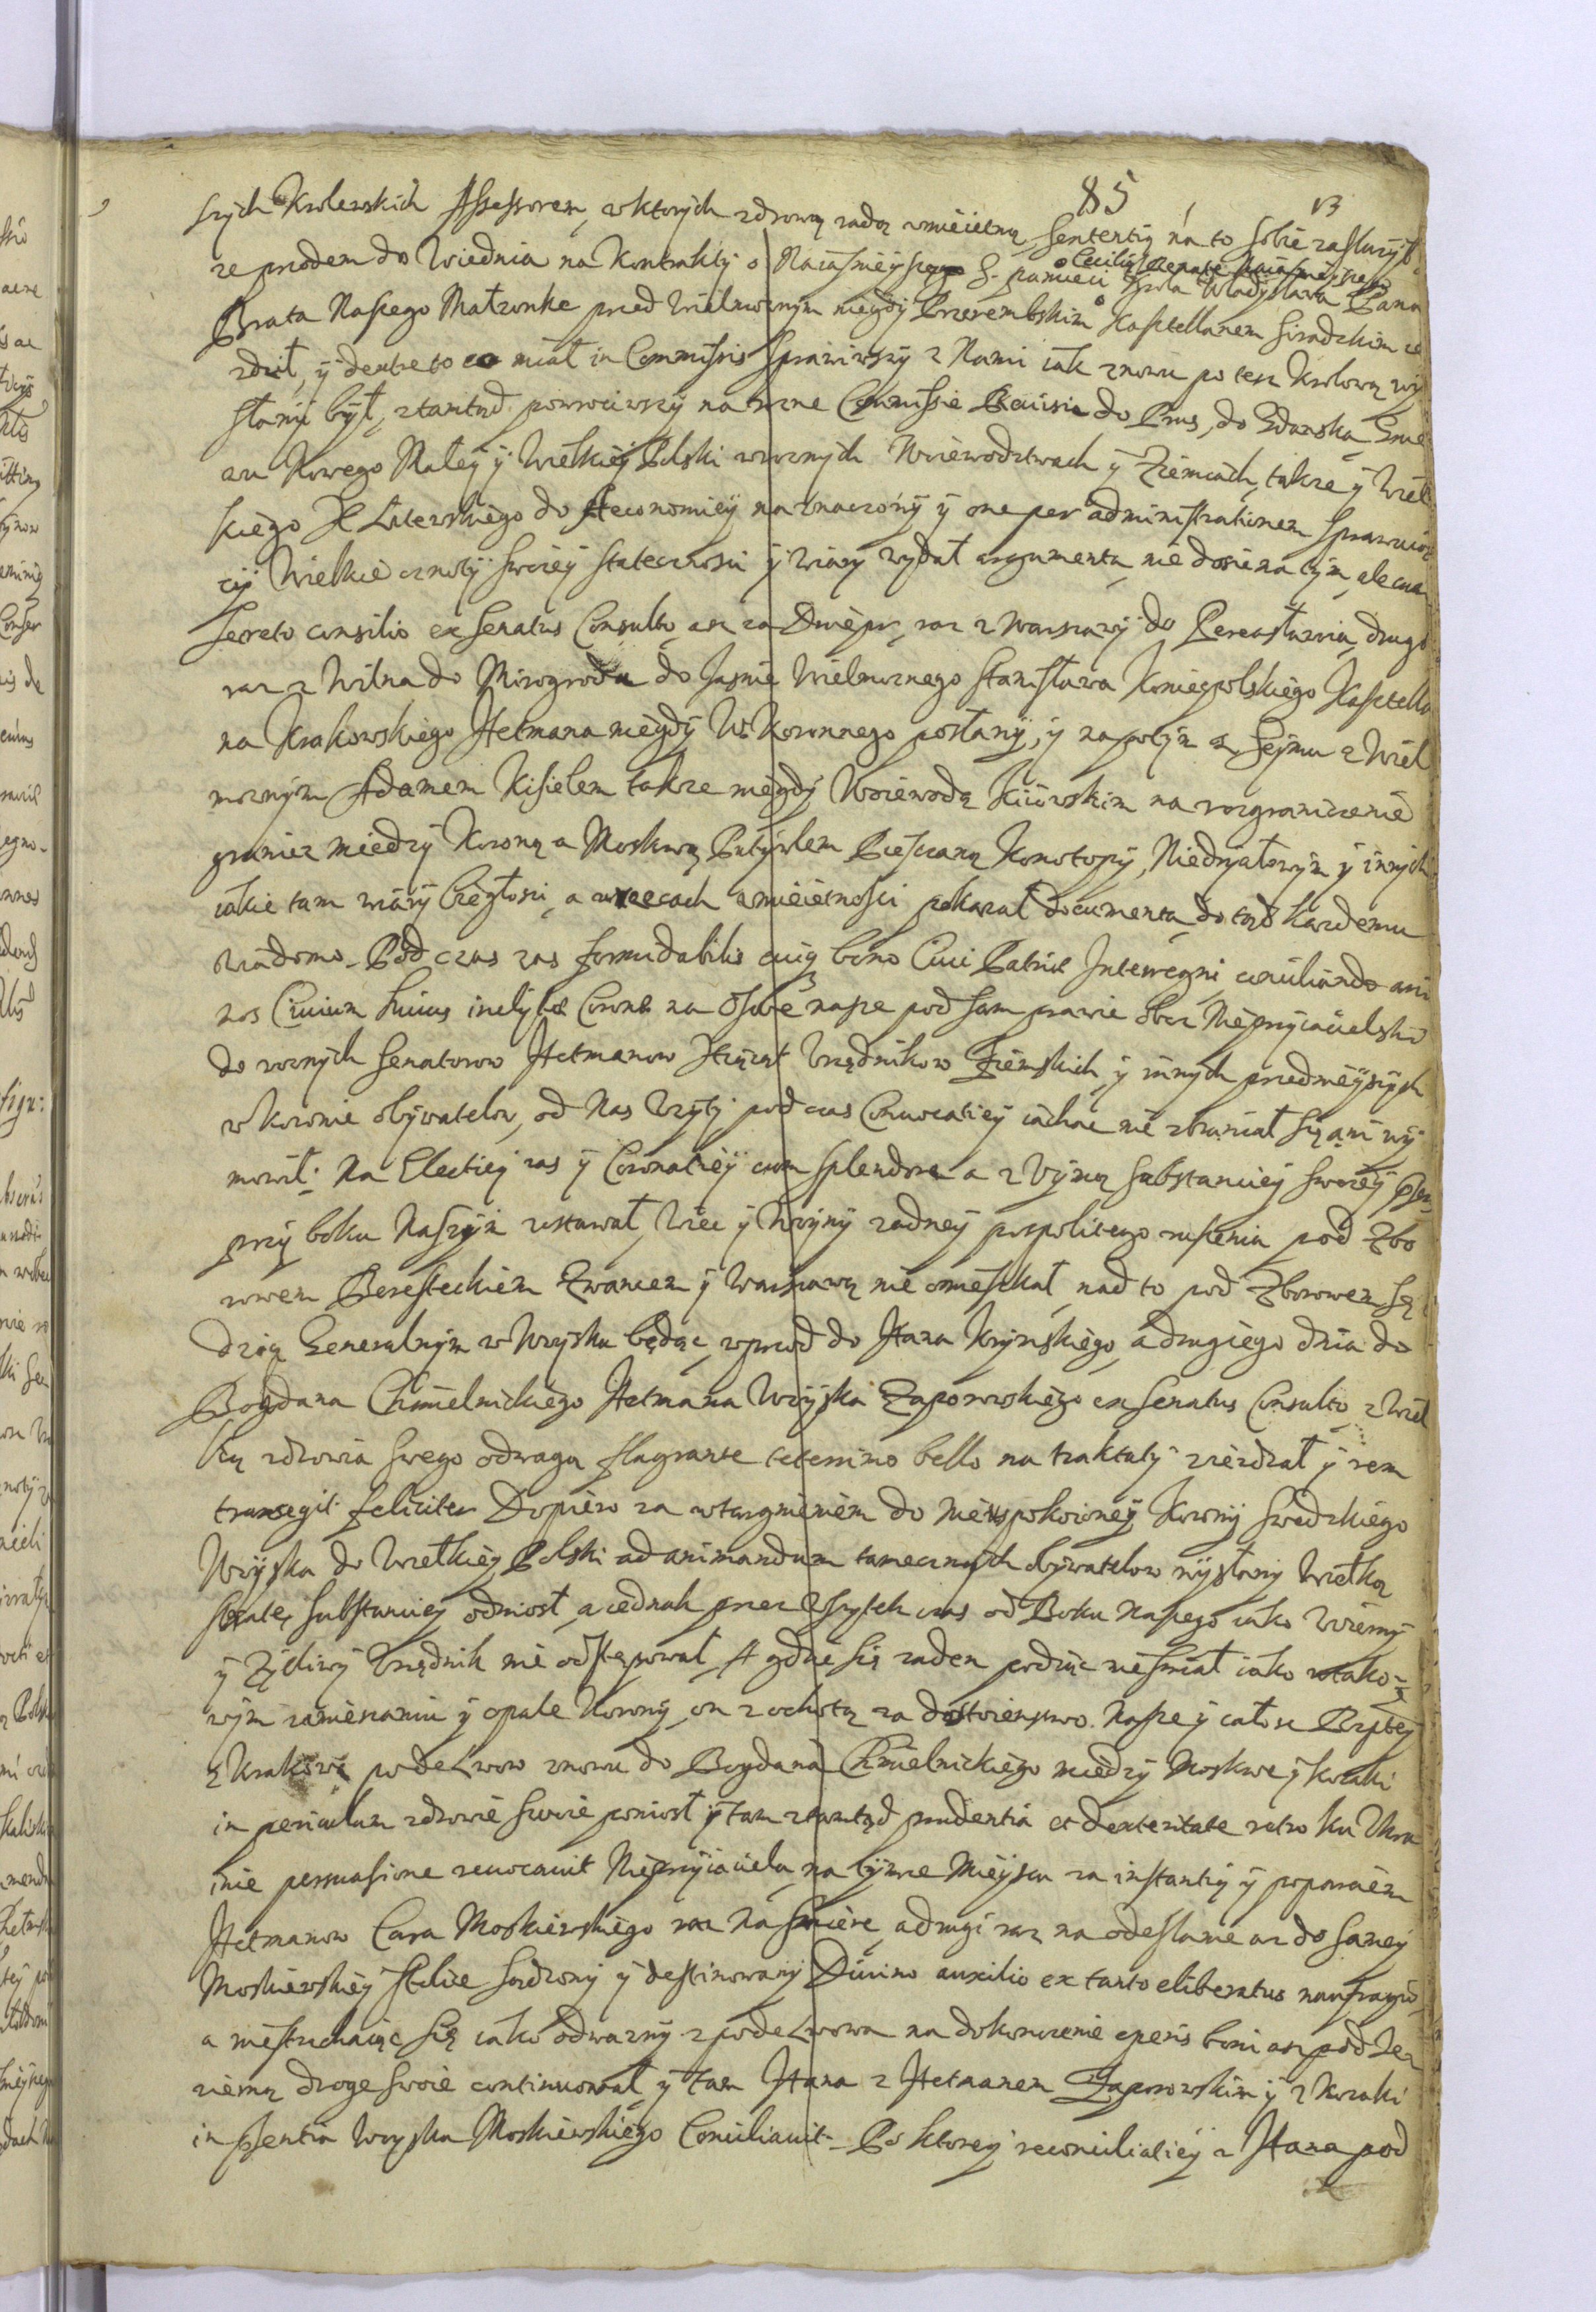 85
13
szych Krolewskich Assessorem, w ktorych zdrową radą umieiętną Sententią na to sobie zasłuzył
ze przodem do Wiednia na Kontrakty o Naiasnieyszego S. pamięci Krola Władysława Pana
Cecilią Renatę Naiasnieyszego
Brata Naszego Małzonke przed Wielmoznym niegdy Przerembskim Kasztellanem Siradzkim ze
zdził, y dextre to co miał in Commissis sprawiwszy z Nami iak znowu po tesz Krolową wy
słany był, ztamtud powrociwszy na rozne Commissie Rewisie do Prus, do Gdanska Gnie
zna Nowego Małey y Wielkiey Polski w roznych Woiewodztwach y Ziemiach, takze y Wiel
skiego Litewskiego do Aeconomiey naznaczony y one per administrationem sprawuiąc
cy Wielkie cnoty swoiey stateczności y wiary wydał argumenta, nie dosic na tym, ale cum
secreto consilio ex Senatus Consulto, asz za Dniepr, raz z Warszawy do Pereasławia, drugi
raz z Wilna do Mirogroda do Jasnie Wielmoznego Stanisława Koniecpolskiego Kasztella
na Krakowskiego Hetmana niegdy W Koronnego posłany, y na potym z Sejmu z Wiel
moznym Adamem Kisielem takze niegdy Woiewodą Kiiowskim na rozgraniczenie
granicz miedzy Koroną a Moskwą Putywlem Piesczaną Konotopy, Niedrygatowym y innych
iakie tam wiary biegłosci, a w rzecach umieiętnosci pokazał documenta, do tąd kazdemu
wiadomo. Pod czas zas formidabilis cuiq bono Ciui Patriae Interregni conciliando ani
mos Ciuium huius inclytae Coronae na Osobe nasze pod sam prawie oboz Nieprzyiacielski
do roznych Senatorow Hetmanow Xiąząt Vrzędnikow Ziemskich, y innych przednieyszych
w Koronie obywatelow, od Nas Vzyty pod czas Conuocatiey iachac nie zbraniał się ani wy
mowił: Na Electiey zas y Coronatiey cum splendore a z Vymą Substanciey swoiey
przy boku Naszym zostawał, Wiec y Woyny zadney pospolitego ruszenia pod Zbo
rowem Beresteckiem Zwancem y Warszawą nie omieszkał, nad to pod Zborowem Sę
dzią Generalnym w Woysku będąc, wprzod do Hana Krymskiego, a drugiego dnia do
Bogdana Chmielnickiego Hetmana Woyska Zaporowskiego ex Senatus Consulto, z Wiel
ką zdrowia swego odwagą flagrante teterrimo bello na traktaty ziezdzał y rem
transegit feliciter Dopiero za wtargnieniem do nieuspokoioney Korony Swedzkiego
Woyska do Wielkiey Polski ad animandum tamecznych obywatelow wysłany Wielką
stratę substanciey odniosł, a iednak przez Wszytek czas od Boku Naszego iako Wierny
y Zycliwy Vrzędnik nie odstępował, A gdzie się zaden podiąc nie smiał iako w tako=
wym zamieszaniu y opale Korony, on z ochotą za dostoienstwo Nasze y całosc Rzptey
z Krakowa pode Lwow znowu do Bogdana Chmielnickiego miedzy Moskwe y Kozaki
in periculum zdrowie swoie poniosł y tam ztamtąd prudentia et dexteritate retro ku Vkra
inie persuasione reuocauit Nieprzyiaciela, na tymze Mieyscu za instantią y poparciem
Hetmanow Cara Moskiewskiego raz na smierc, a drugi raz na odesłanie az do samey
Moskiewskiey Stolice sądzony y destinowany Diuino auxilio ex tanto eliberatus naufragio,
a niestrachaiąc się iako odwazny z pode Lwowa na dokonczenie operis boni asz pod Jez
ziernę droge swoie continuował, y tam Hana z Hetmanem Zaporowskim y z Kozaki
in psentia Woyska Moskiewskiego Conciliauit. Po ktorey reconciliatiey z Hana pod